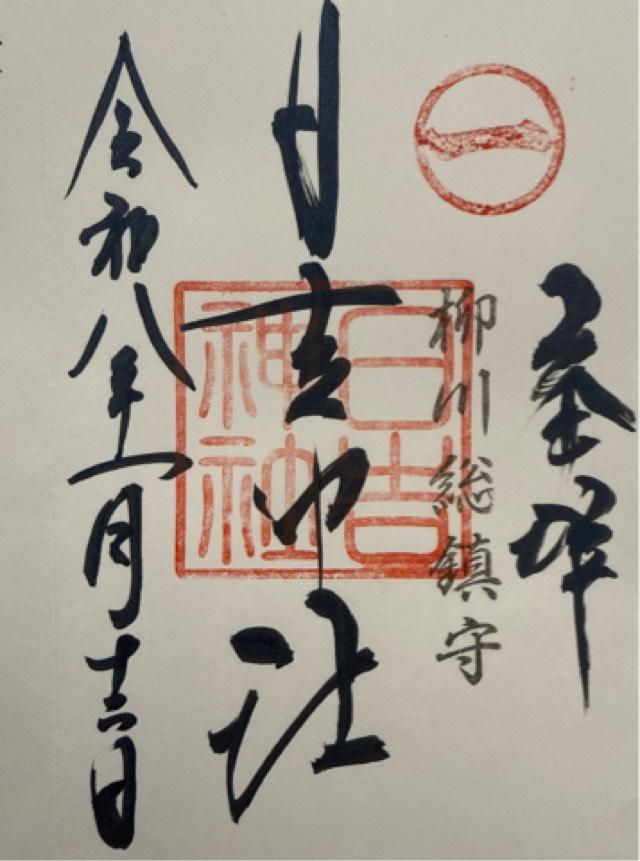 一
奉拝
柳川総鎮守
日吉神社
日吉
神社
令和八年一月十六日